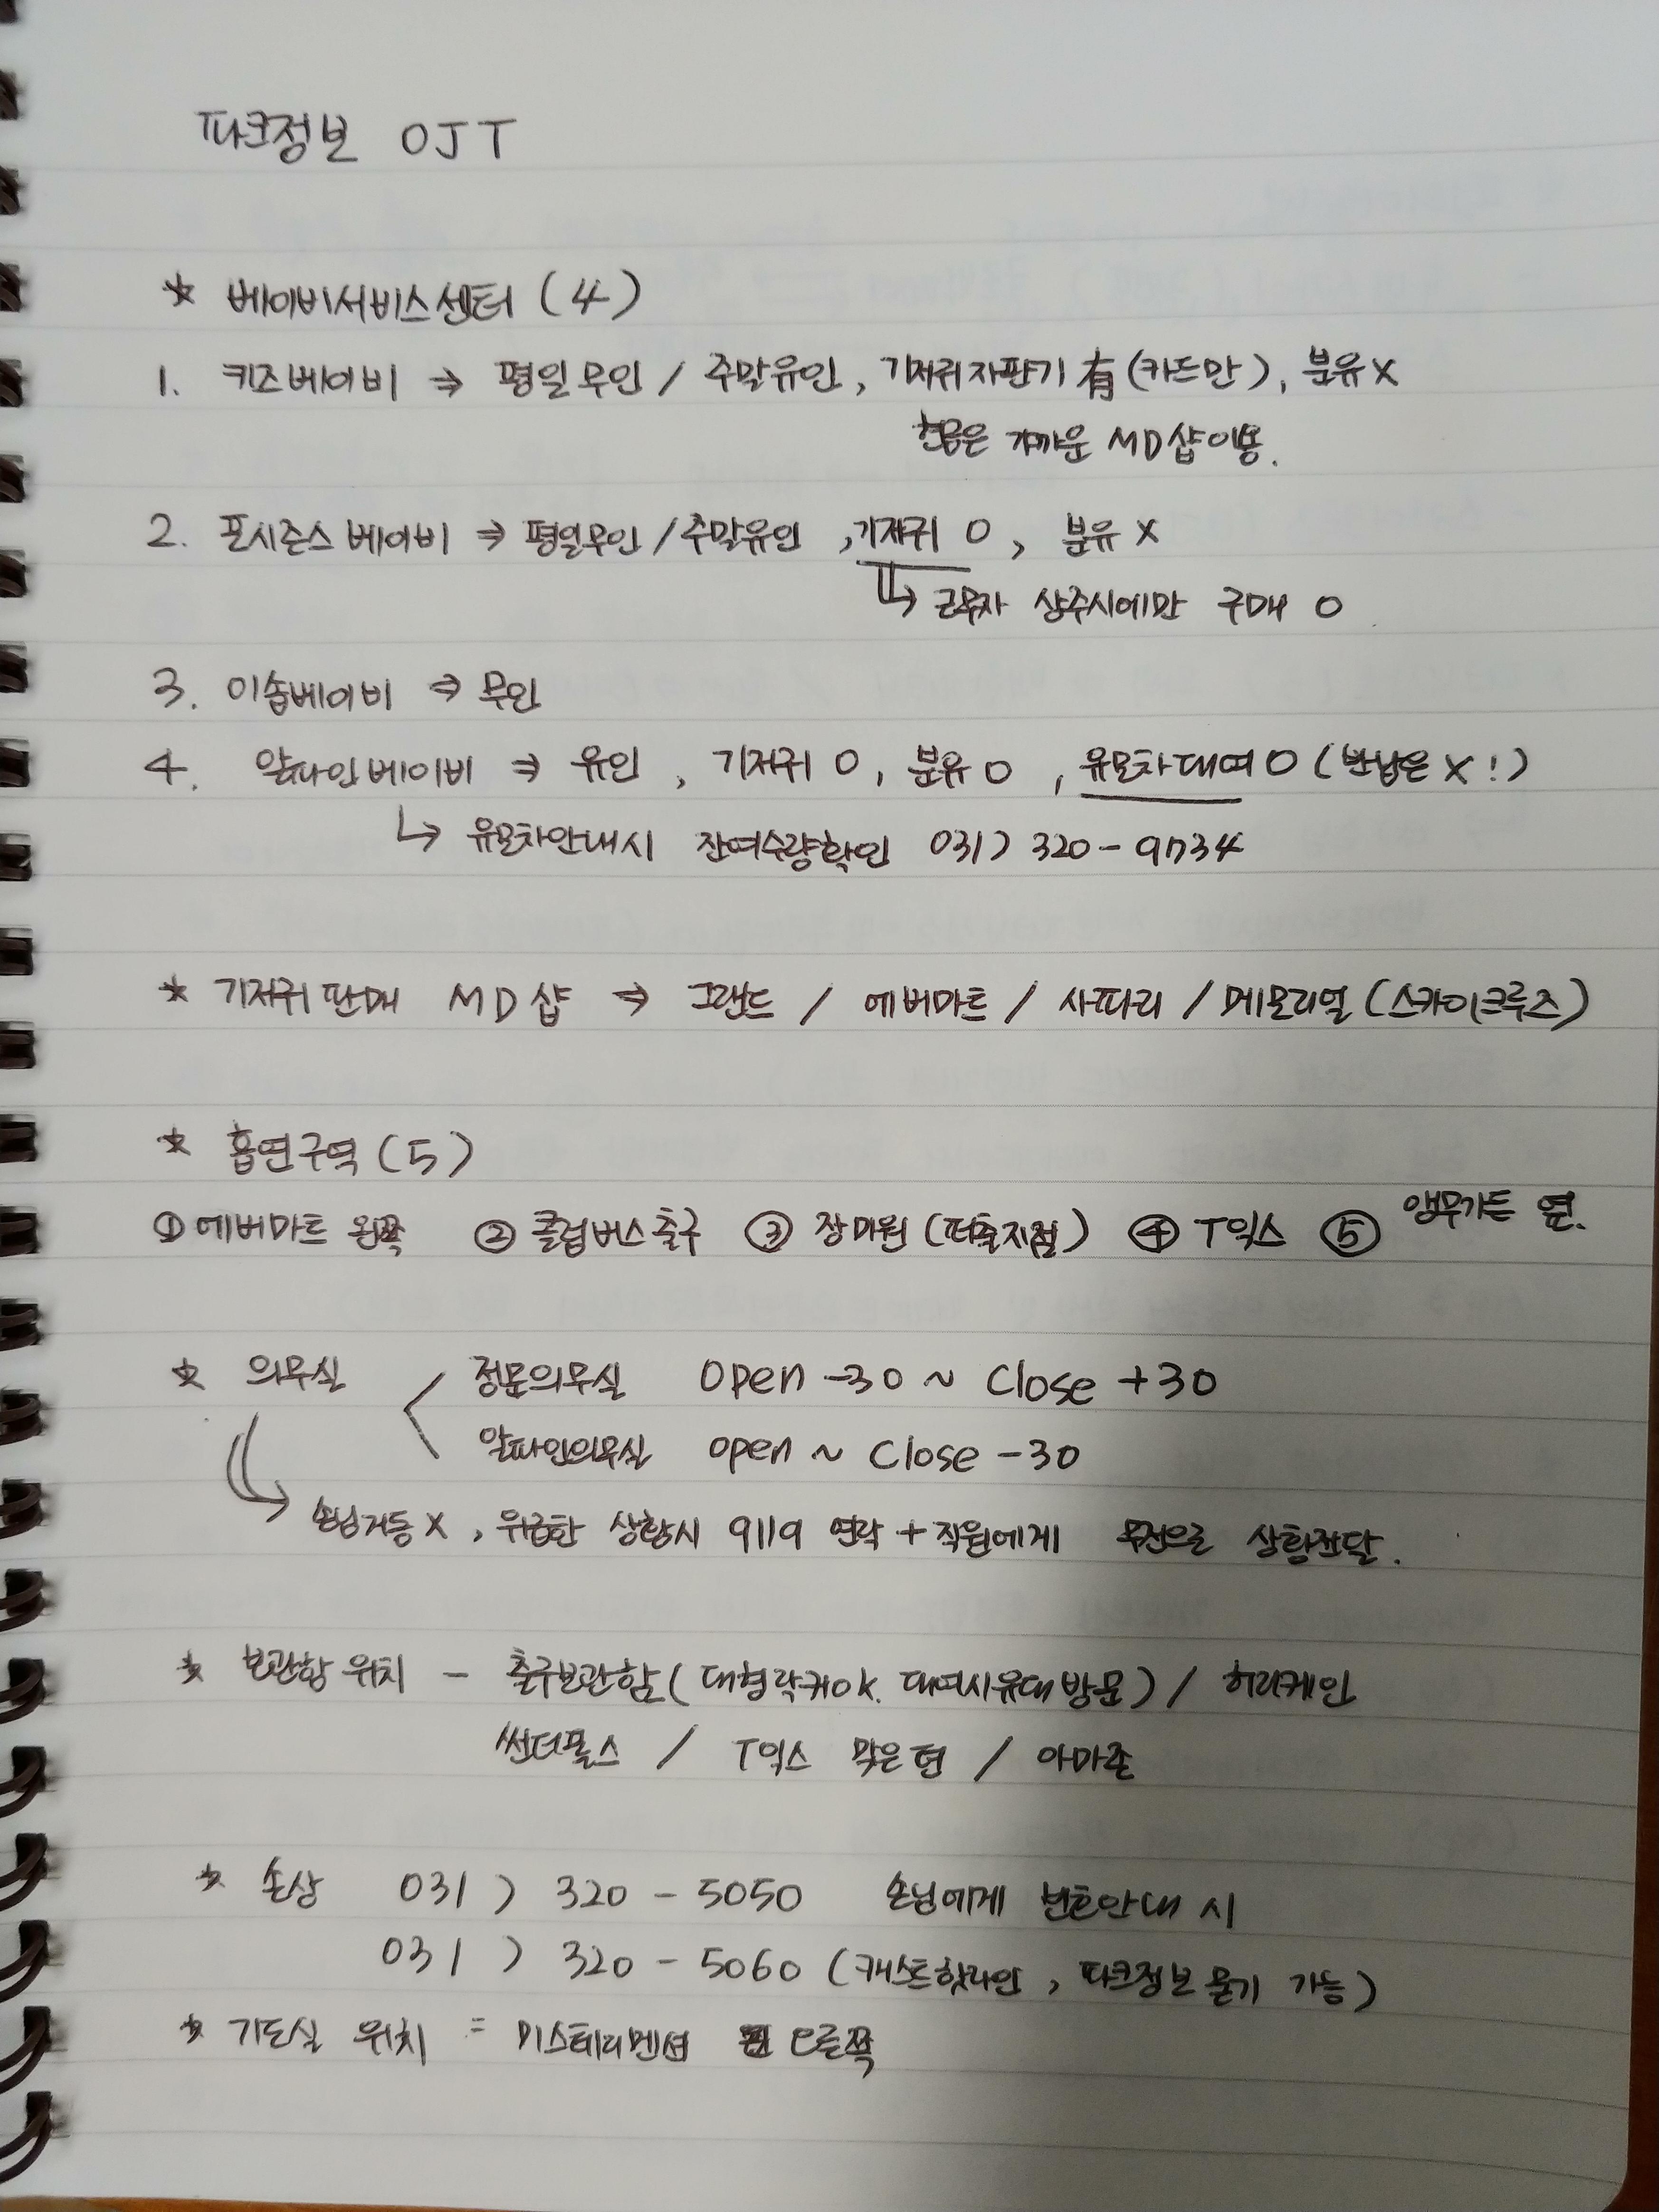 파크정보 OJT
* 베이비서비스센터 (4)
1. 키즈베이비 ⇒ 평일무인 / 주말유인, 기저귀자판기 有 (카드만), 분유 X
현금은 가까운 MD샵이용.
2. 포시즌스베이비 ⇒ 평일무인 / 주말유인, 기저귀 O, 분유 X
↳ 근무자 상주시에만 구매 O
3. 이솝베이비 ⇒ 무인
4. 알파인베이비 ⇒ 유인, 기저귀 O, 분유 O, 유모차대여 O (반납은 X!)
↳ 유모차안내시 잔여수량확인 031) 320-9734
* 기저귀판매 MD샵 ⇒ 그랜드 / 에버마트 / 사파리 / 메모리얼 (스카이크루즈)
* 흡연구역 (5)
① 에버마트 왼쪽 ② 클럽버스출구 ③ 장미원 (퍼출지점) ④ T익스 ⑤ 앵무가든 옆.
* 의무실 < 정문의무실 Open -30 ~ Close +30
알파인의무실 open ~ Close -30
손님거동 X, 위급한 상황시 9119 연락 + 직원에게 무전으로 상황전달.
* 보관함 위치 - 출구보관함 (대형락커 ok. 대여시유대방문) / 허리케인
썬더폴스 / T익스 맞은편 / 아마존
* 손상 031) 320-5050 손님에게 번호안내 시
031) 320-5060 (캐스트핫라인, 파크정보 묻기 가능)
* 기도실 위치 = 미스테리멘션 오른쪽